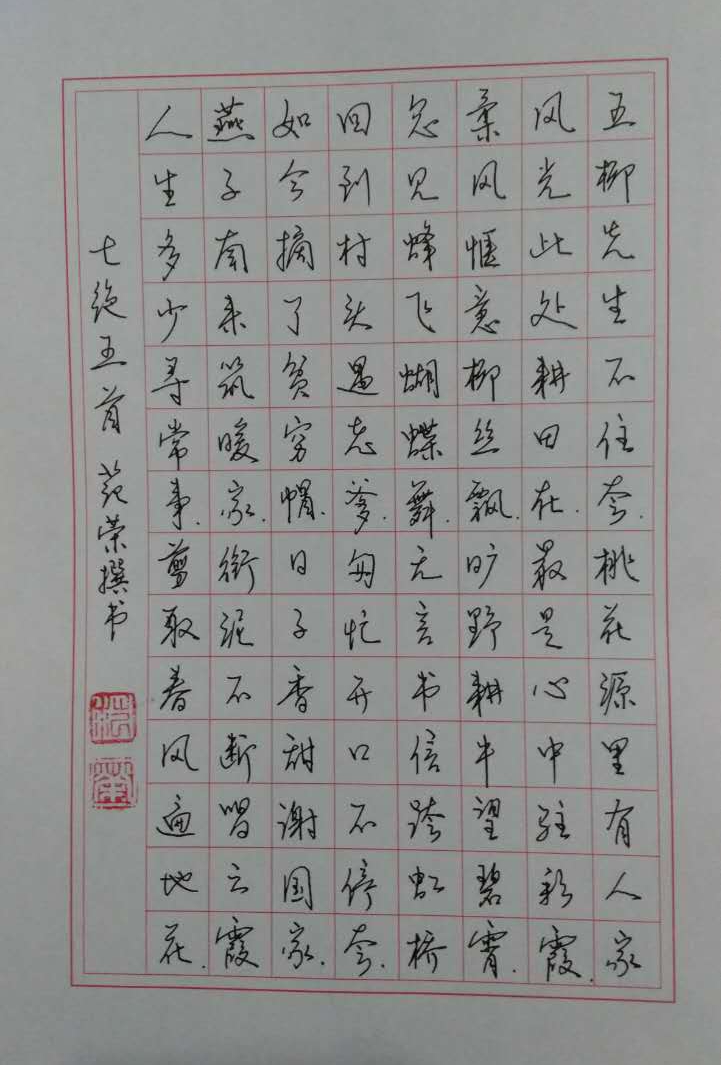 五柳先生不住夸.桃花源里有人家
风光此处耕田在.最是心中驻彩霞.
柔风惬意柳丝飘.旷野耕牛望碧霄.
忽见蜂飞蝴蝶舞.无言书信跨虹桥
回到村头遇老爹.匆忙开口不停夸.
如今摘了贫穷帽.日子香甜谢国家.
燕子南来筑暖家.衔泥不断唱云霞
人生多少寻常事.剪取春风遍地花.
七绝五首 范荣撰书